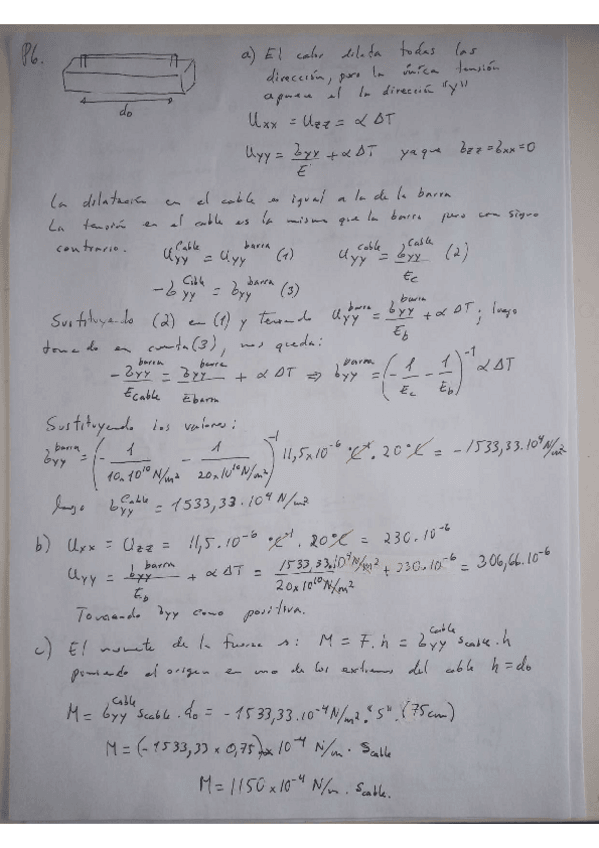 P6.
a) El calor dilata todas las
dirección, pero la única tensión
aparece el la dirección "y"
d₀
Uxx = Uzz = α ΔT
Uyy = σyy/E + α ΔT ya que σzz = σxx = 0
La dilatación en el cable es igual a la de la barra
La tensión en el cable es la misma que la barra pero con signo
contrario. Uyy^cable = Uyy^barra (1) Uyy^cable = σyy^cable/Ec (2)
-σyy^cable = σyy^barra (3)
Sustituyendo (2) en (1) y teniendo Uyy^barra = σyy^barra/Eb + α ΔT; luego
tomado en cuenta (3), nos queda:
-σyy^barra/Ecable = σyy^barra/Ebarra + α ΔT ⇒ σyy^barra = (-1/Ec - 1/Eb)^-1 α ΔT
Sustituyendo los valores:
σyy^barra = (-1/(10×10^10 N/m²) - 1/(20×10^10 N/m²))^-1 11,5×10^-6 °C^-1 · 20°C = -1533,33·10^4 N/m²
luego σyy^cable = 1533,33·10^4 N/m²
b) Uxx = Uzz = 11,5·10^-6 °C^-1 · 20°C = 230·10^-6
Uyy = σyy^barra/Eb + α ΔT = 1533,33·10^4 N/m²/20×10^10 N/m² + 230·10^-6 = 306,66·10^-6
Tomando σyy como positiva.
c) El momento de la fuerza es: M = F·h = σyy^cable Scable·h
poniendo el origen en uno de los extremos del cable h = d₀
M = σyy^cable Scable·d₀ = -1533,33·10^-4 N/m²·"S"·(75cm)
M = (-1533,33 × 0,75) × 10^-4 N/m · Scable
M = 1150 × 10^-4 N/m · Scable.